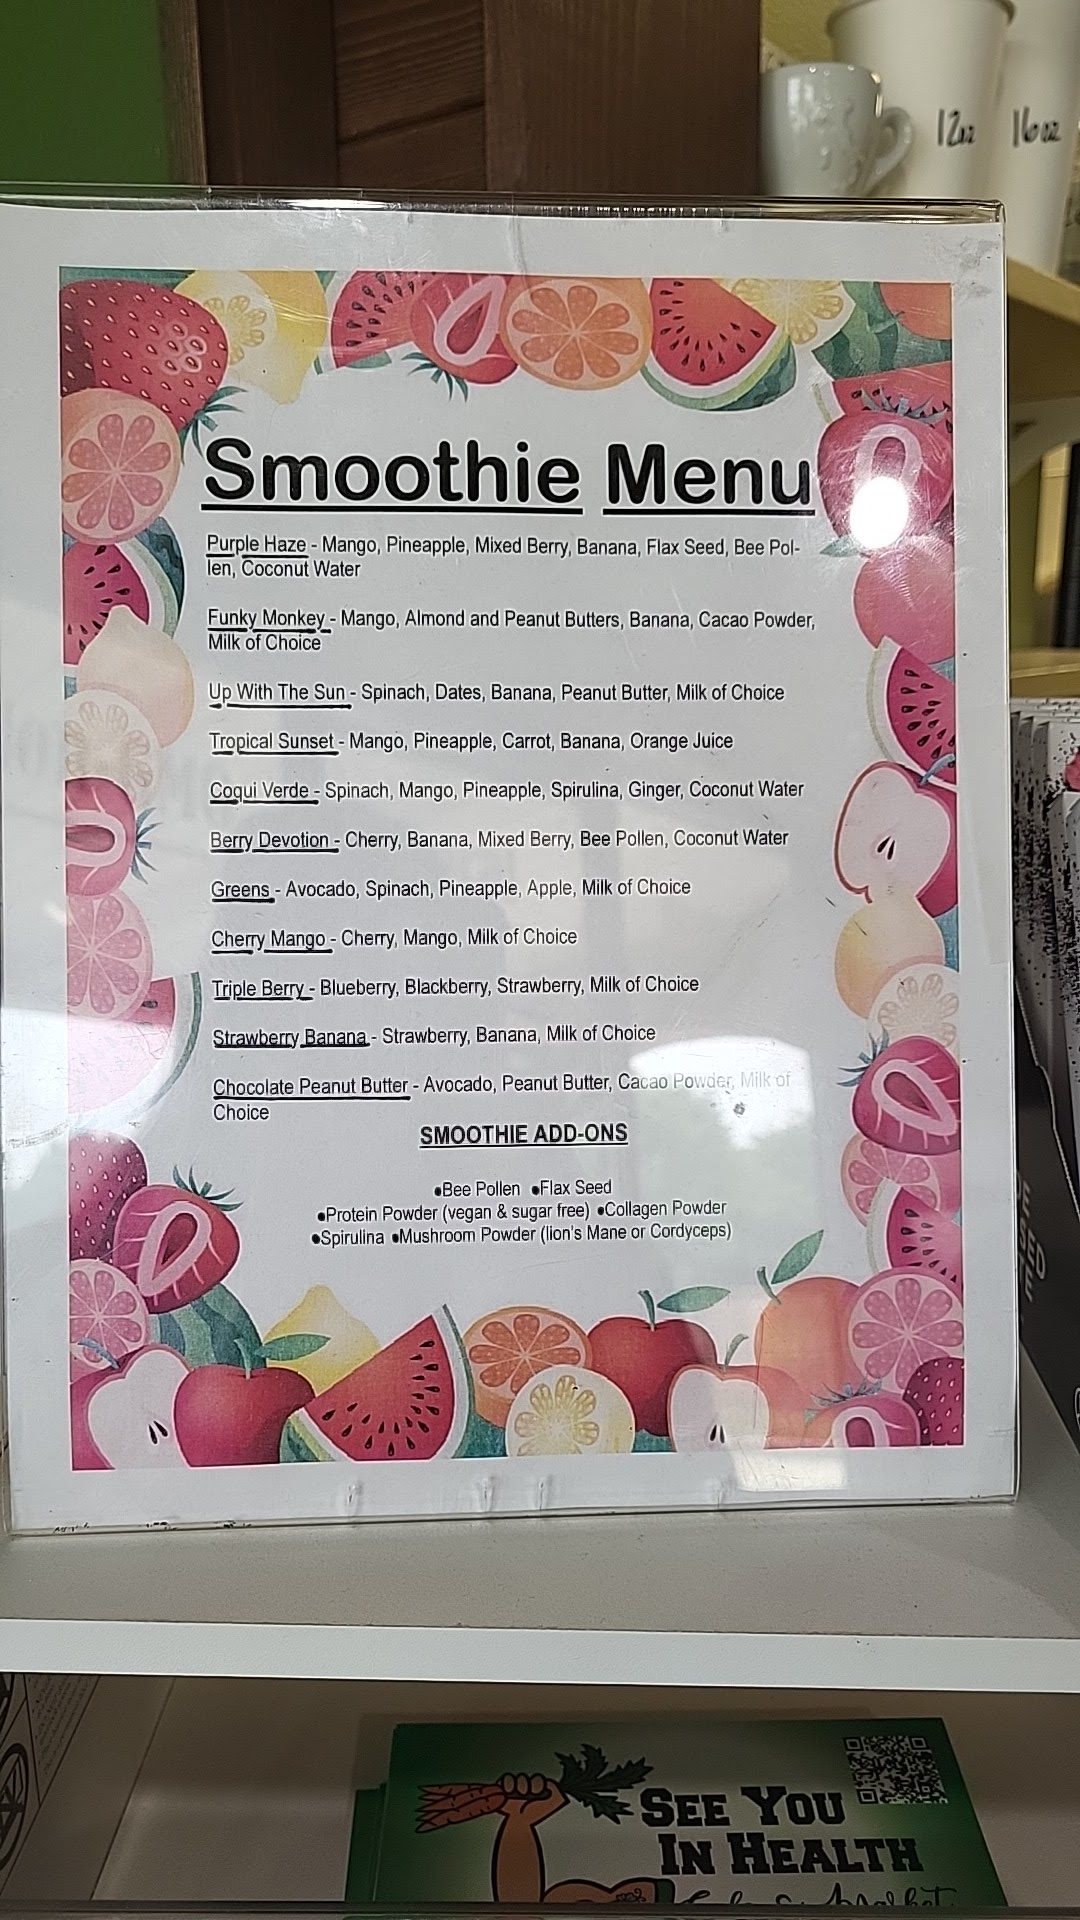 12oz
16oz
Smoothie Menu
Purple Haze - Mango, Pineapple, Mixed Berry, Banana, Flax Seed, Bee Pol-
len, Coconut Water
Funky Monkey - Mango, Almond and Peanut Butters, Banana, Cacao Powder,
Milk of Choice
Up With The Sun - Spinach, Dates, Banana, Peanut Butter, Milk of Choice
Tropical Sunset - Mango, Pineapple, Carrot, Banana, Orange Juice
Coqui Verde - Spinach, Mango, Pineapple, Spirulina, Ginger, Coconut Water
Berry Devotion - Cherry, Banana, Mixed Berry, Bee Pollen, Coconut Water
Greens - Avocado, Spinach, Pineapple, Apple, Milk of Choice
Cherry Mango - Cherry, Mango, Milk of Choice
Triple Berry - Blueberry, Blackberry, Strawberry, Milk of Choice
Strawberry Banana - Strawberry, Banana, Milk of Choice
Chocolate Peanut Butter - Avocado, Peanut Butter, Cacao Powder, Milk of
Choice
SMOOTHIE ADD-ONS
•Bee Pollen •Flax Seed
•Protein Powder (vegan & sugar free) •Collagen Powder
•Spirulina •Mushroom Powder (lion's Mane or Cordyceps)
SEE YOU
IN HEALTH